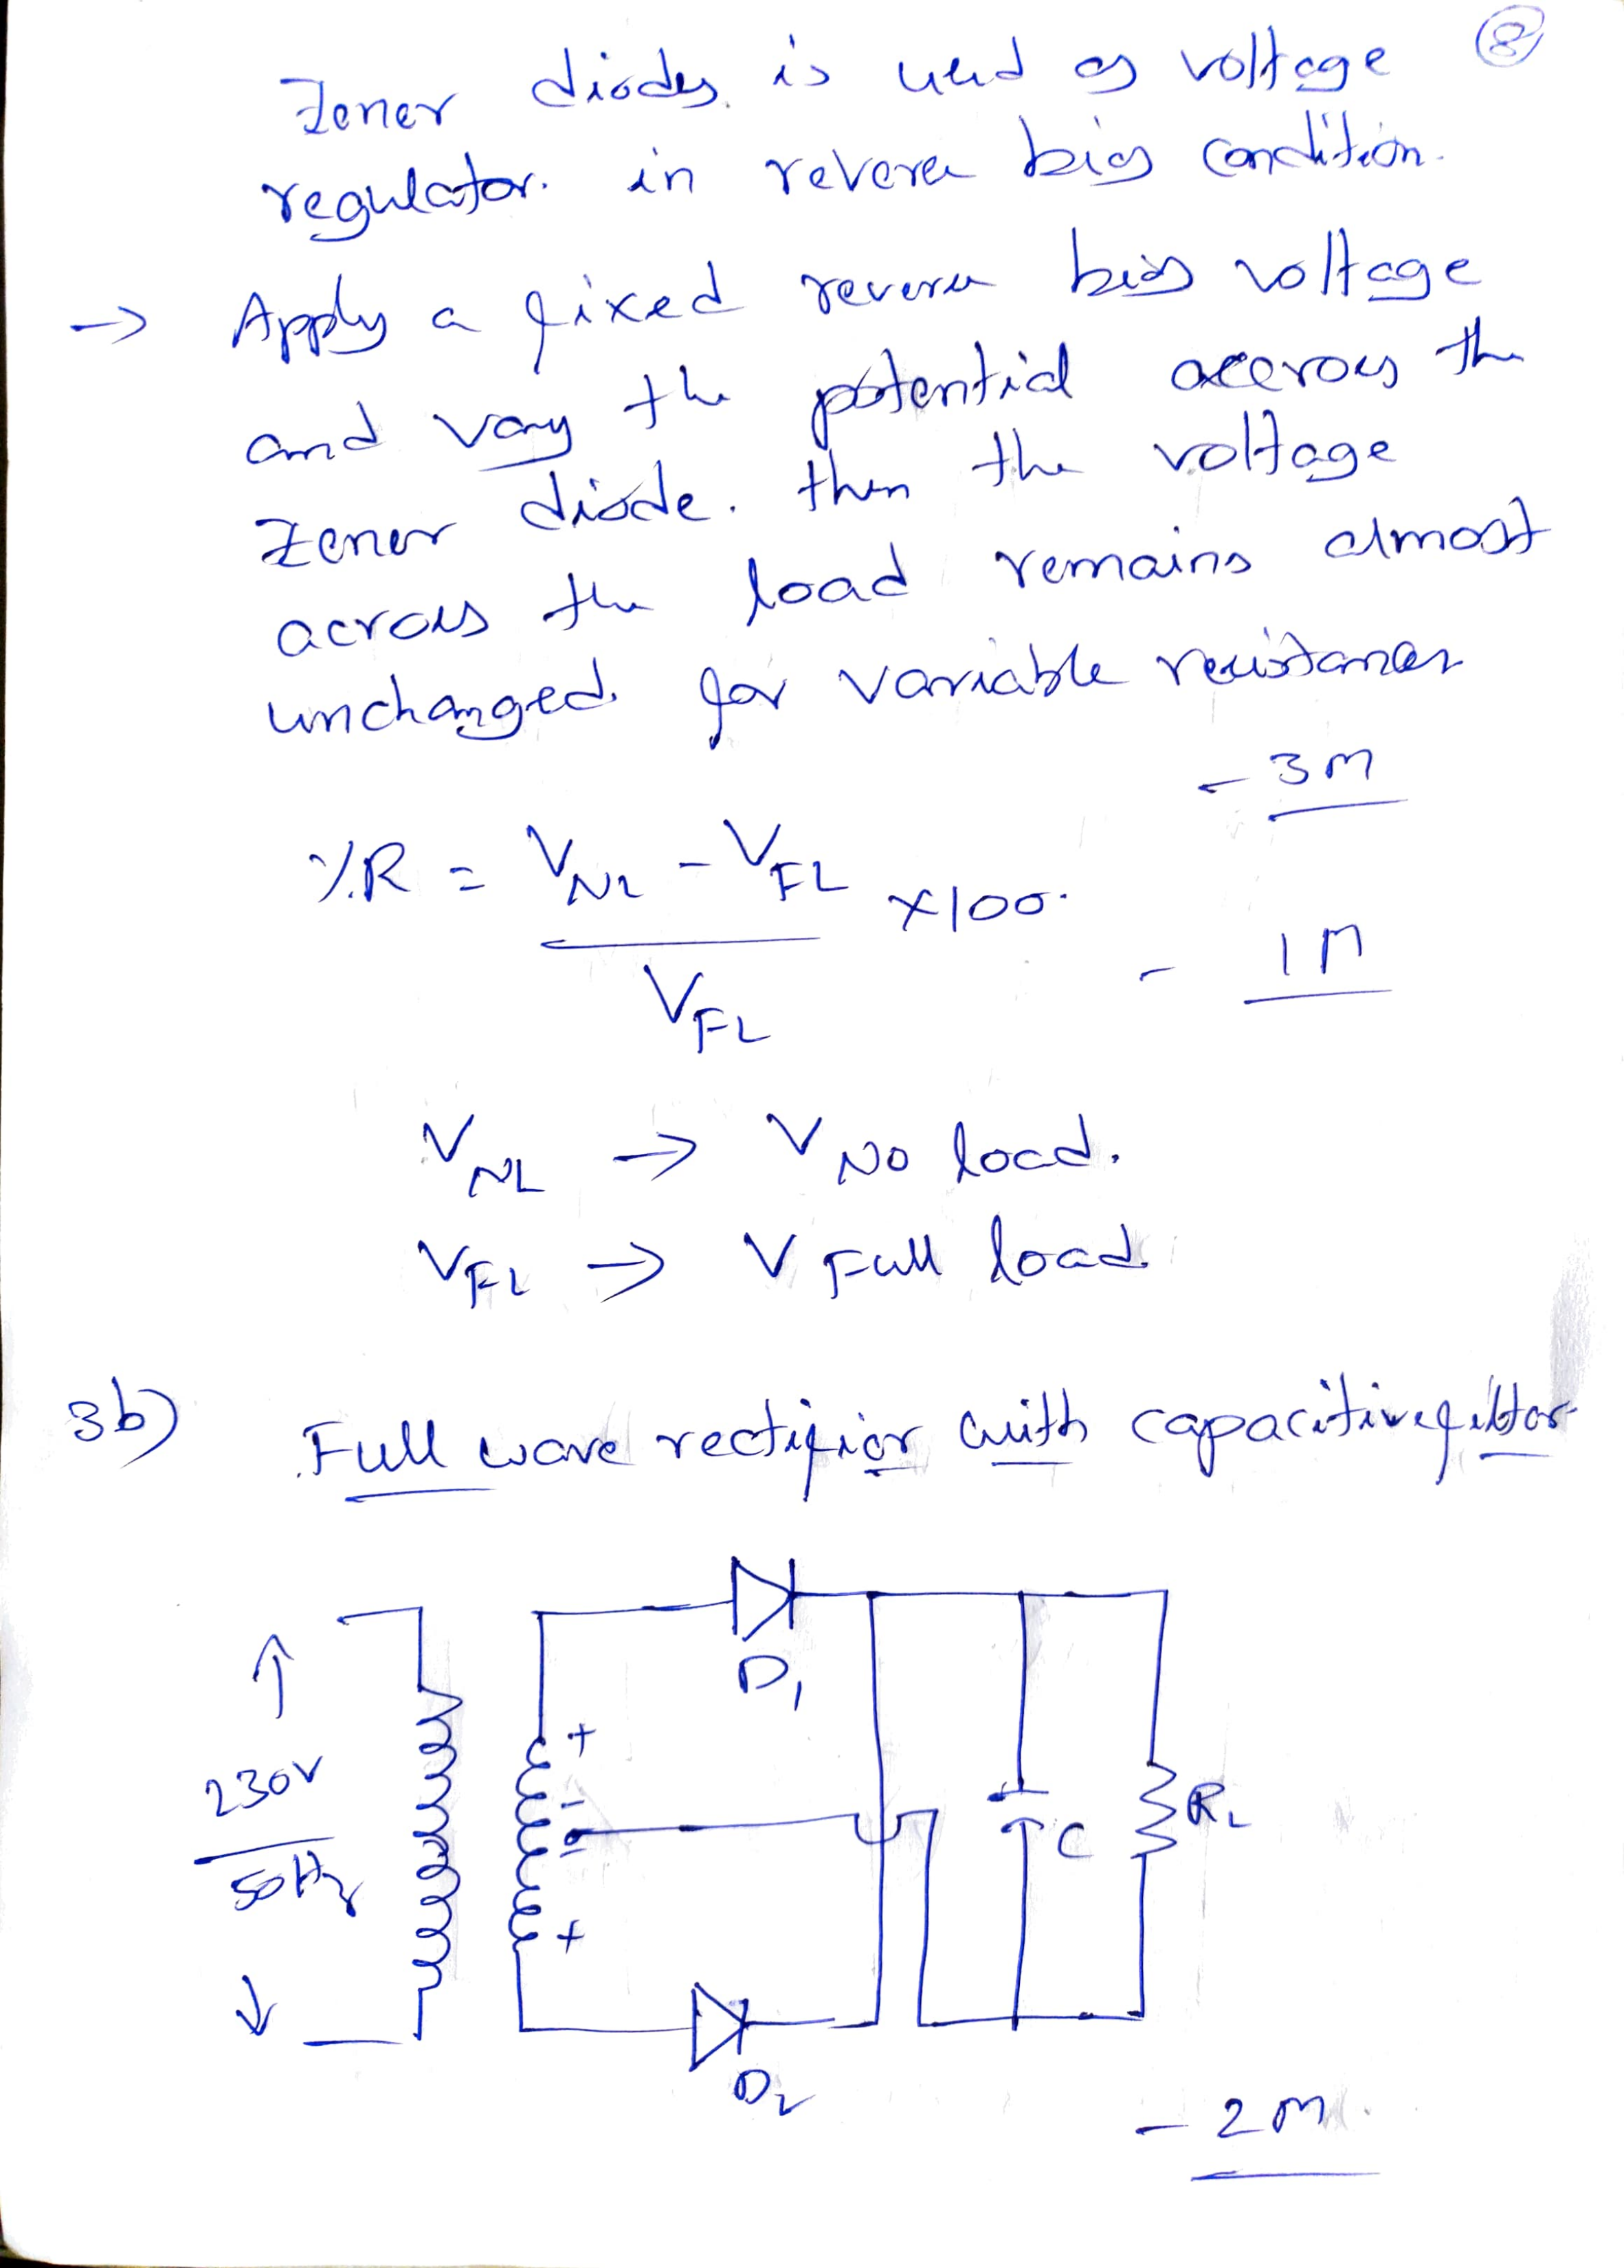 8
Zener diodes is used as voltage
regulator. in reverse bias condition.
→ Apply a fixed reverse bias voltage
and vary the potential accross the
Zener diode. then the voltage
across the load remains almost
unchanged. for variable resistances
- 3M
%R = V_NL - V_FL ×100.
V_FL
- 1M
V_NL → V No load.
V_FL → V Full load
3b) Full wave rectifier with capacitive filter
D1
+
230V
50Hz
-
-
C
RL
+
D2
- 2M.